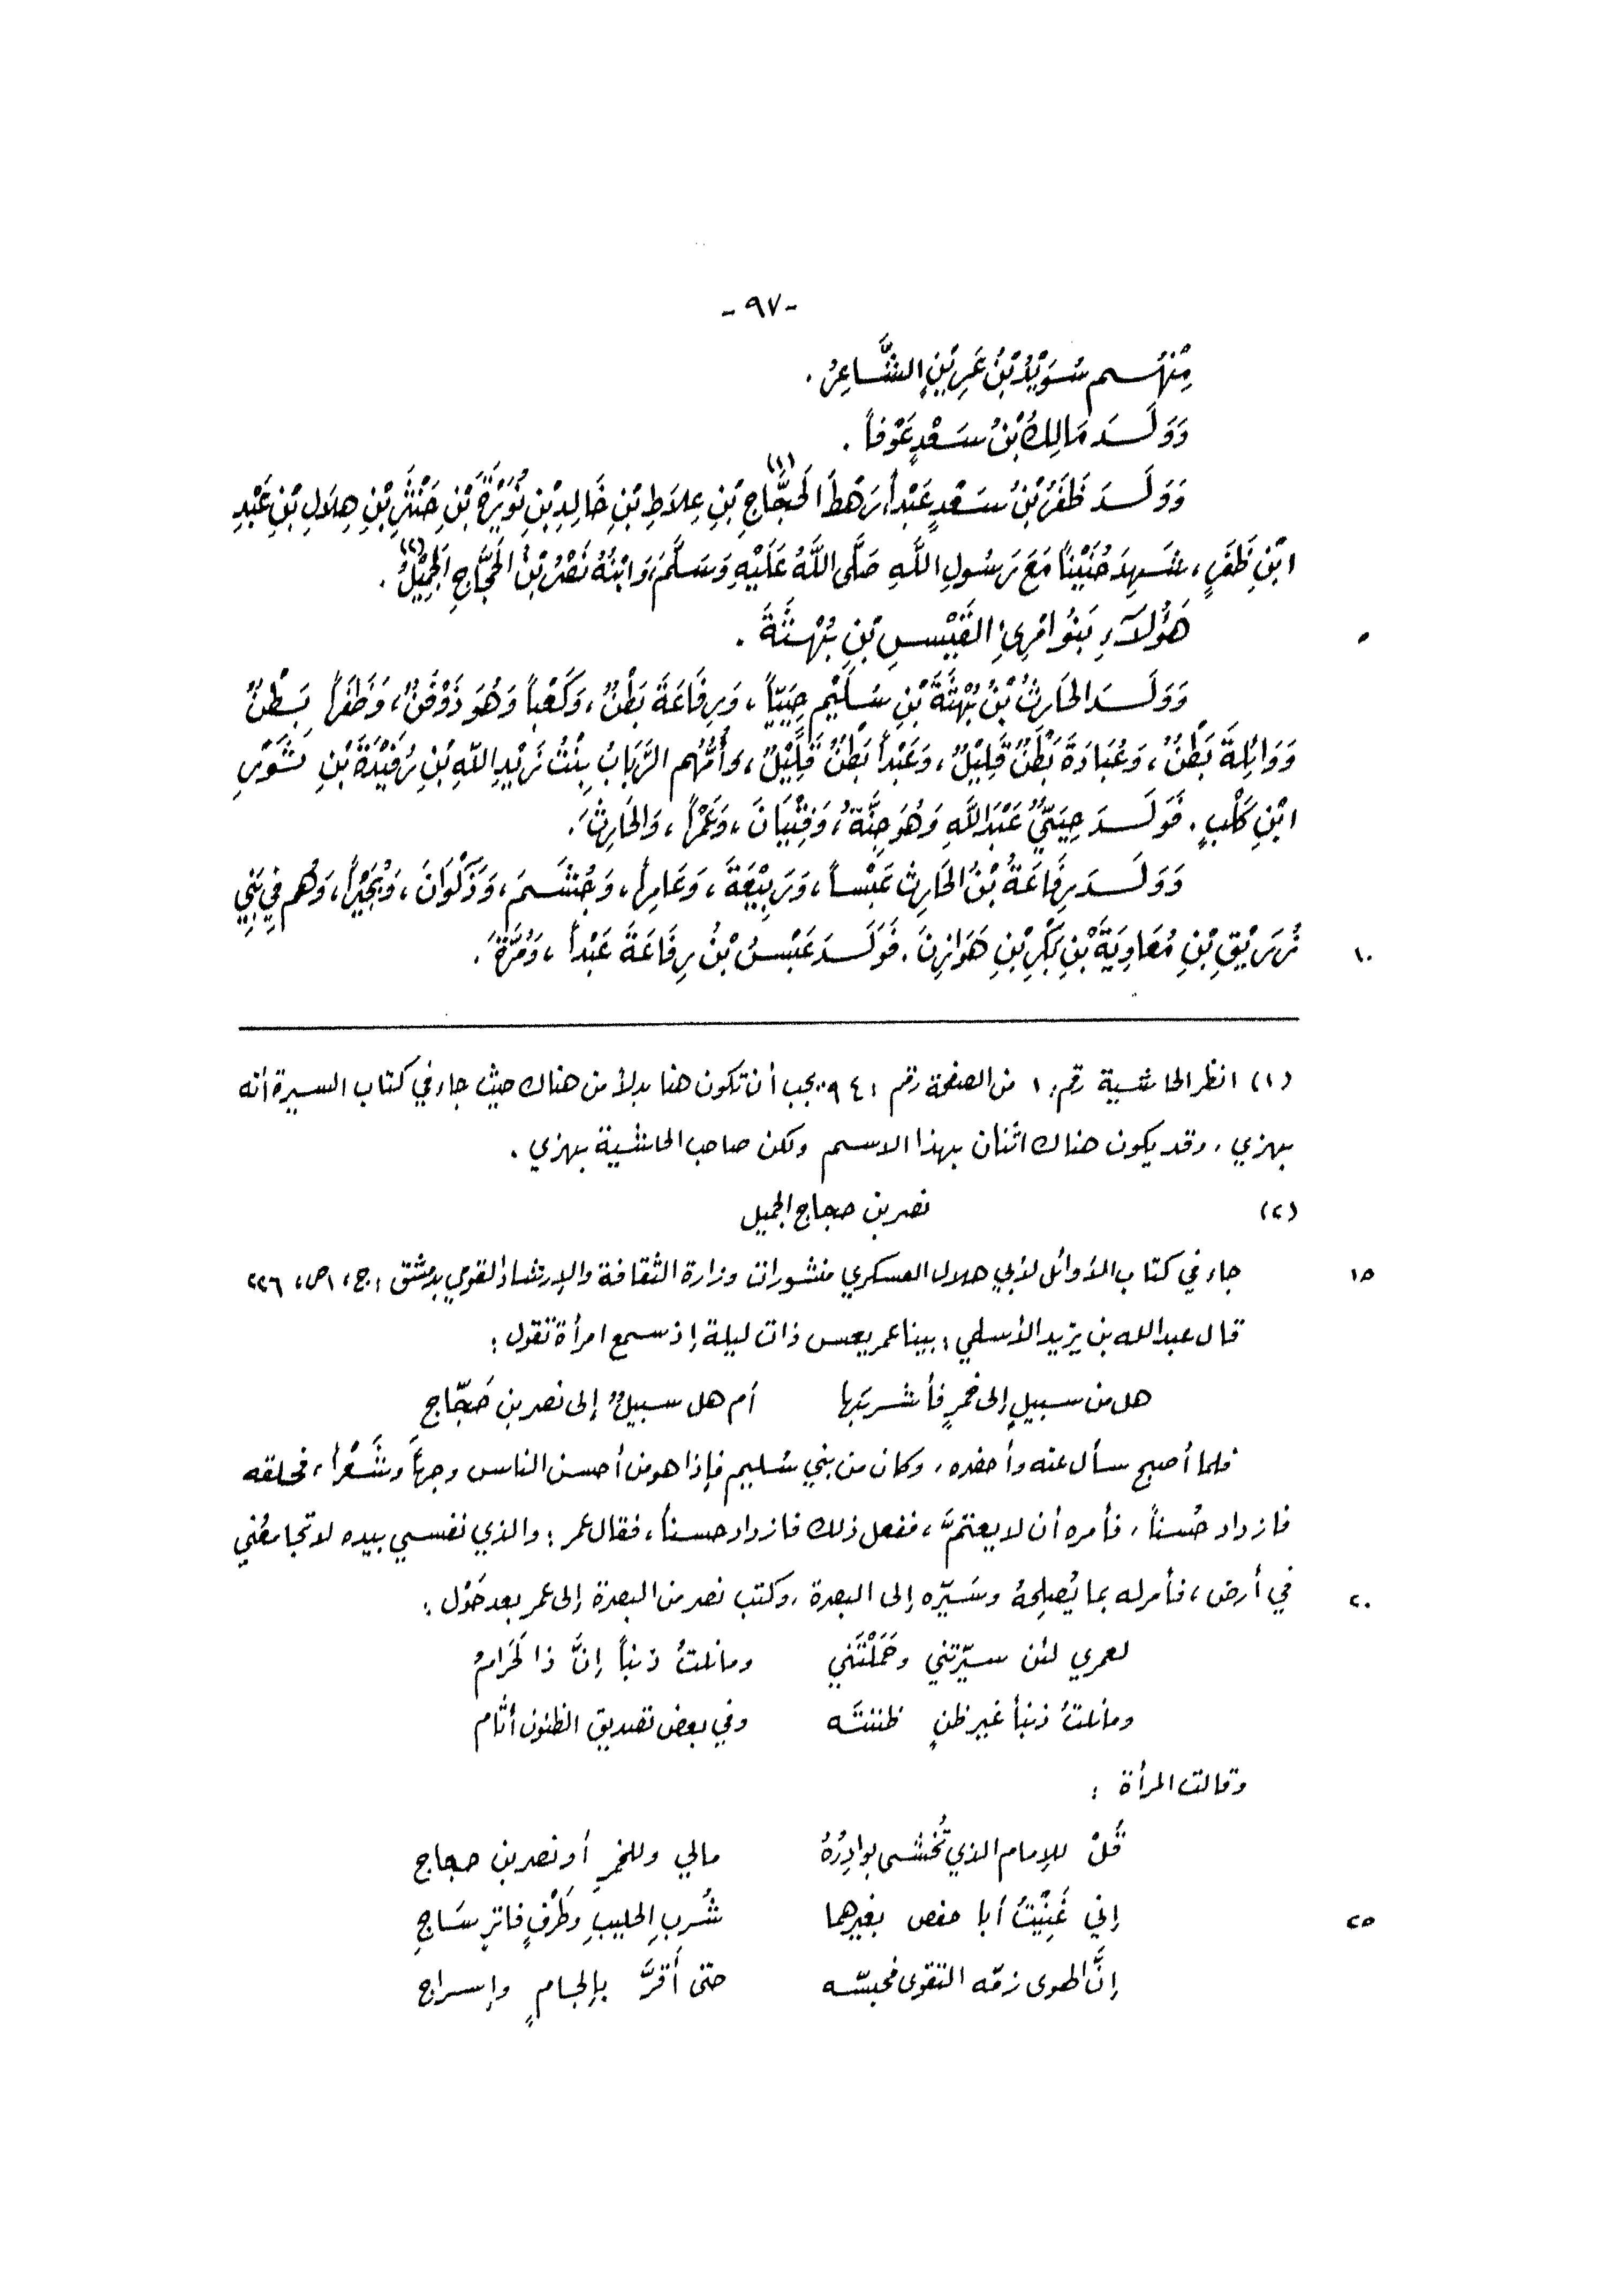 -٩٧-
مِنْهُم سُوَيْدُ بْنُ عَرِيْنٍ الشَّاعِرُ.
وَوَلَدَ مَالِكُ بْنُ سَعْدٍ عَوْفاً.
وَوَلَدَ ظَفَرُ بْنُ سَعْدٍ عَبْداً رَهْطَ الحَجَّاجِ (١) بْنِ عِلاَطِ بْنِ خَالِدِ بْنِ نُوَيْرَةَ بْنِ حَنْثَرِ بْنِ هِلاَلِ بْنِ عَبْدِ
ابْنِ ظَفَرٍ، شَهِدَ حُنَيْناً مَعَ رَسُولِ اللَّهِ صَلَّى اللَّهُ عَلَيْهِ وَسَلَّمَ، وَابْنُهُ نَصْرُ بْنُ الحَجَّاجِ الجَمِيْلُ (٢).
٥ هَؤُلاَءِ بَنُو امْرِئِ القَيْسِ بْنِ بُهْثَةَ.
وَوَلَدَ الحَارِثُ بْنُ بُهْثَةَ بْنِ سُلَيْمٍ حِيَيّاً، وَرِفَاعَةَ بَطْنٌ، وَكَعْباً وَهُوَ ذَوْفَنٌ، وَظَفَراً بَطْنٌ
وَوَائِلَةَ بَطْنٌ، وَعُبَادَةَ بَطْنٌ قَلِيْلٌ، وَعَبْداً بَطْنٌ قَلِيْلٌ، وَأُمُّهُم الرَّبَابُ بِنْتُ زَيْدِ اللّهِ بْنِ رُفَيْدَةَ بْنِ ثَوْرِ
ابْنِ كَلْبٍ. فَوَلَدَ حِيَيٌّ عَبْدَ اللَّهِ وَهُوَ جِنَّةُ، وَفِتْيَانَ، وَعَمْراً، وَالحَارِثَ.
وَوَلَدَ رِفَاعَةُ بْنُ الحَارِثِ عَبْساً، وَرَبِيْعَةَ، وَعَامِراً، وَجُشَمَ، وَذَكْوَانَ، وَبُجَيْراً، وَهُم فِي بَنِي
١٠ زُرَيْقِ بْنِ مُعَاوِيَةَ بْنِ بَكْرِ بْنِ هَوَازِنَ. فَوَلَدَ عَبْسُ بْنُ رِفَاعَةَ عَبْداً، وَمُرَّةَ.
(١) انظر الحاشية رقم: ١ من الصفحة رقم: ٩٤ يجب أن تكون هنا بدلاً من هناك حيث جاء في كتاب السيرة أنه
بهزي، وقد يكون هناك اثنان بهذا الاسم ولكن صاحب الحاشية بهزي.
(٢) نصر بن حجاج الجميل
١٥ جاء في كتاب الأوائل لأبي هلال العسكري منشورات وزارة الثقافة والإرشاد القومي بدمشق: ج، ١ ص، ٢٢٦
قال عبد الله بن يزيد الأسلمي: بينا عمر يعس ذات ليلة إذ سمع امرأة تقول:
هل من سبيلٍ إلى خمرٍ فأشربَها أم هل سبيلٌ إلى نصر بنِ حَجّاجِ
فلما أصبح سأل عنه وأحضره، وكان من بني سُليم فإذا هو من أحسن الناس وجهاً وشَعْراً، فحلقه
فازداد حُسناً، فأمره أن لا يعتمَّ، ففعل ذلك فازداد حسناً، فقال عمر: والذي نفسي بيده لا تجامعُني
٢٠ في أرض، فأمر له بما يُصلِحهُ وسَيّره إلى البصرة، وكتب نصر من البصرة إلى عمر بعد حَوْل:
لعمري لئن سيّرتني وحَمَلْتَني ومانلتُ ذنباً إنَّ ذا لَحَرامُ
ومانلتُ ذنباً غير ظنٍ ظننتَه وفي بعض تصديق الظنون أثام
وقالت المرأة:
قُلْ للإمام الذي تُخشى بوادِرُهُ مالي وللخمرِ أو نصر بن حجاج
٢٥ إني غَنِيْتُ أبا حفص بغيرهما شُربِ الحليبِ وطَرْفٍ فاترٍ سَاجِ
إنَّ الهوى زمّه التقوى فحبسّه حتى أَقرَّ بإلجامٍ وإسراج